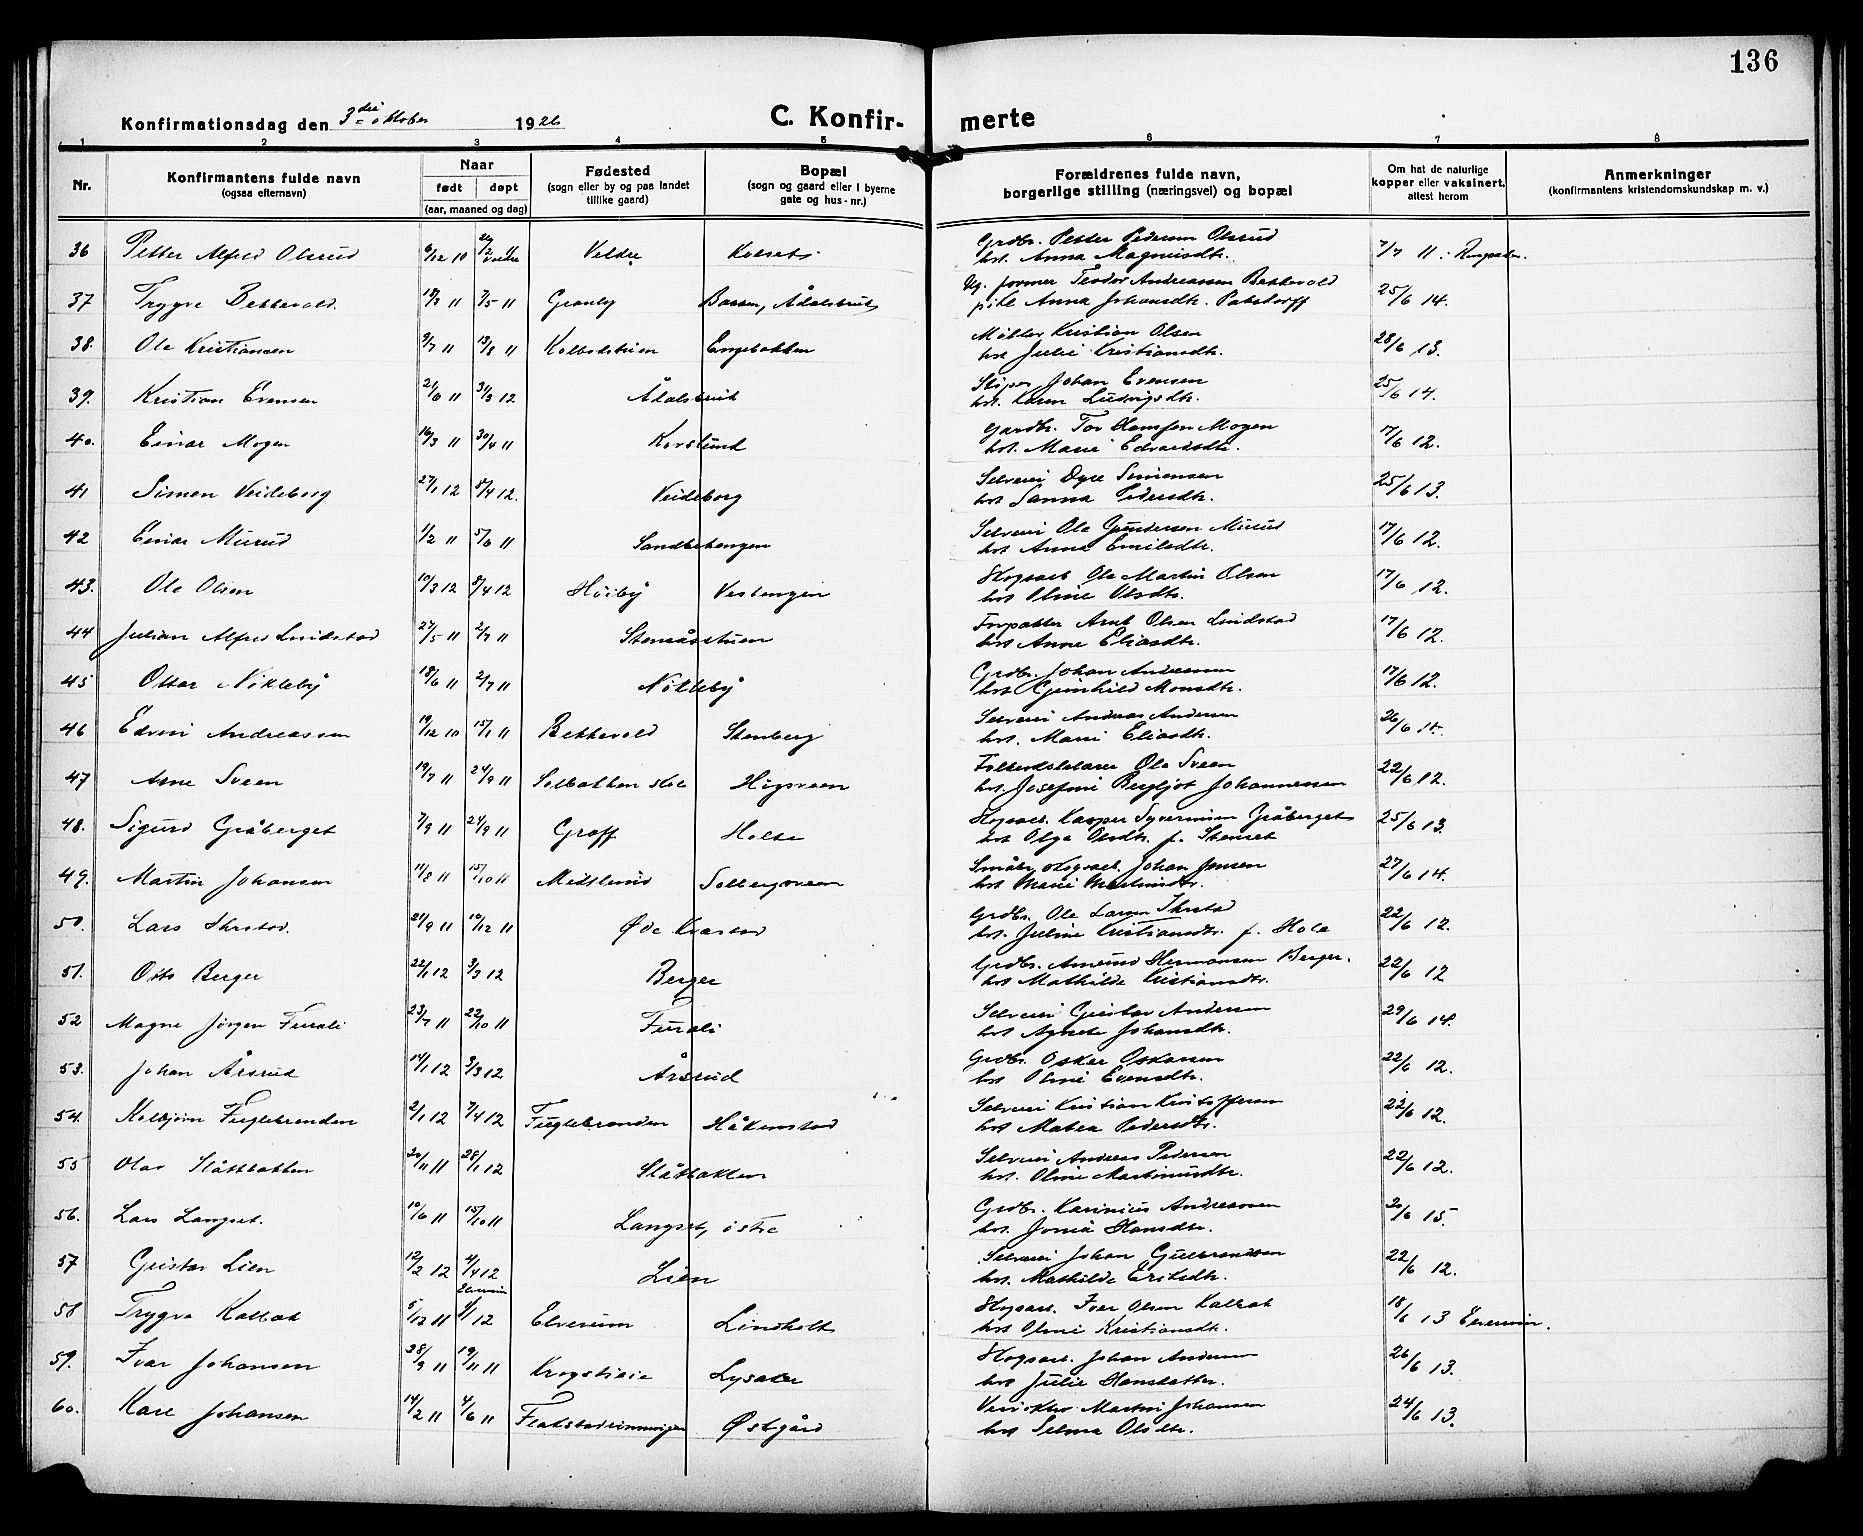 136
Konfirmationsdag den 3die oktober 1926 C. Konfir- merte
1 2 3 4 5 6 7 8
Nr. Konfirmantens fulde navn (ogsaa efternavn) Naar født døpt (aar, maaned og dag) Fødested (sogn eller by og paa landet tillike gaard) Bopæl (sogn og gaard eller i byerne gate og hus-nr.) Forældrenes fulde navn, borgerlige stilling (næringsvei) og bopæl Om hat de naturlige kopper eller vaksinert, attest herom Anmerkninger (konfirmantens kristendomskundskap m. v.)
36 Petter Alfred Olsrud 6/12 10 26/2 Veldre Veldre Grdbr. Petter Pedersen Olsrud
hst. Anna Magnusdtr. 7/7 11
37 Trygve Bekkevold. 18/3 11 7/5 11 Granly Ådalsbruk Ug. former Teodor Andreassen Bekkevold
pike Anna Johansdtr. 25/6 14.
38. Ole Kristiansen 9/7 11 13/8 11 Kolbodstuen Engebakken Møller Kristian Olsen
hst Julie Kristiansdtr. 28/6 13.
39. Kristian Evensen 21/6 11 31/3 12 Ådalsbruk Sliper Johan Evensen
hst. Karen Ludvigsdtr. 25/6 14.
40. Einar Mogen 16/3 11 30/4 11 Korslund Gardbr. Tor Hansen Mogen
hst. Marie Edvardsdtr. 17/6 12.
41 Simen Veideborg 27/1 12 8/4 12. Veideborg Selveier Dyre Simensen
hst Sanna Pedersdtr. 25/6 13.
42 Einar Murud 1/2 11 5/6 11 Sandbehengen Selveier Ole Gundersen Murud
hst. Anna Emilsdtr. 17/6 12.
43. Ole Olsen 19/3 12 8/4 12 Hørby Vestengen Skogsarb. Ole Martin Olsen
hst Oline Olsdtr. 17/6 12.
44 Julian Alfred Lindstad 27/5 11 2/7 11 Stensåsstuen Forpakter Arnt Olsen Lindstad
hst Anne Eliasdtr. 17/6 12.
45 Ottar Nøkleby 18/6 11 2/7 11 Nøkleby Grdbr. Johan Andreassen
hst Gunhild Monsdtr. 17/6 12.
46 Edvin Andreassen 19/12 10 15/1 11 Bekkevold Stenberg Selveier Andreas Andersen
hst. Marie Eliasdtr. 26/6
47 Arne Sveen 19/7 11 24/9 11 Solbakken skole Høgsveen Ole Sveen
hst. Josefine Bergljot Johannessen 22/6 12.
48. Sigurd Gråberget 7/9 11 24/9 11 Graff Holte Skogsarb. Kasper Syversen Gråberget
hst Olga Olsdtr. f. Stenset 25/6 13.
49. Martin Johansen 11/8 11 15/10 11 Midtlund Solbergsveen Småbr. skogsarb. Johan Jensen
hst Marie Martinsdtr. 27/6 14.
50. Lars Ihrstad. 21/9 11 10/12 11 Grdbr. Ole Larsen Ihrstad
hst. Juline Kristiansdtr. f. Hole 22/6 12.
51. Otto Berger 22/1 12 3/3 12 Berger Grdbr. Amund Hermansen Berger.
hst Mathilde Kristiansdtr. 22/6 12
52 Magne Jørgen Furali 23/7 11 22/10 11 Furali Selveier Gustav Andersen
hst. Agnete Johansdtr. 29/6 14.
53. Johan Årsrud 14/1 12 3/3 12 Årsrud Grdbr. Oskar Oskarsen
hst Oline Evensdtr. 22/6 12.
54. Kolbjørn Fuglebrenden 2/1 12 7/4 12 Fuglebrenden Håkenstad Selveier Kristian Kristoffersen
hst. Matea Pedersdtr. 22/6 12.
55 Olav Slåbakken 20/11 11 28/1 12 Slåbakken Selveier Andreas Pedersen
hst. Oline Martinusdtr. 22/6 12.
56. Lars Langset. 10/6 11 15/10 11 Langset, østre Grdbr. Karinius Andreassen
hst. Jonia Hansdtr. 30/6 15.
57 Gustav Lien 12/2 12 4/4 12 Lien Selveier Johan Gulbrandsen
hst. Mathilde Eriksdtr. 22/6 12.
58 Trygve Kolbak 5/12 11 Elverum 1/1 12 Elverum Lindholt Skogsarb. Iver Olsen Kolbak
hst Oline Kristiansdtr. 18/6 13 Elverum.
59. Ivar Johansen 28/9 11 19/11 11 Krogstieie Lysaker Skogsarb. Johan Andersen
hst Julie Hansdatter. 26/6 13.
60. Kåre Johansen 14/2 11 4/6 11 Østgård Martin Johansen
hst Selma Olsdtr. 24/6 13.